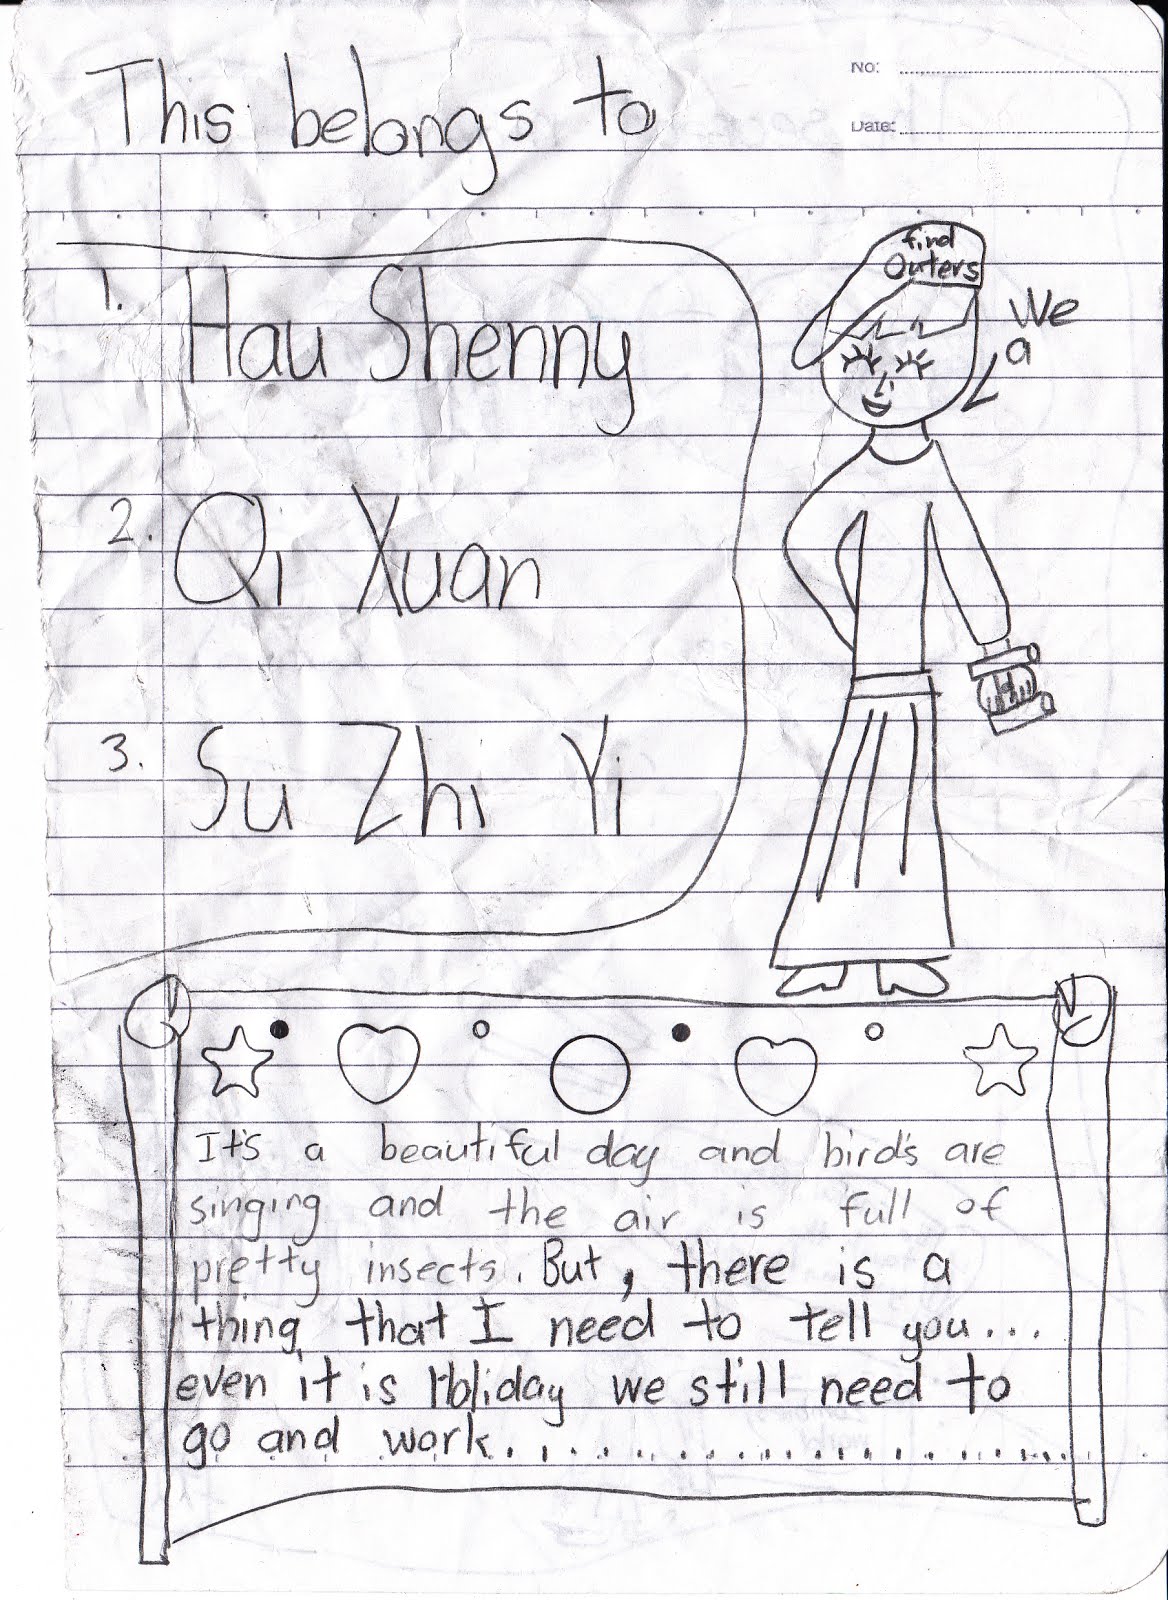 No:
Date:
This belongs to
find
Outers
We
a
1. Hau Shenny
2. Qi Xuan
3. Su Zhi Yi
It's a beautiful day and bird's are
singing and the air is full of
pretty insects. But, there is a
thing that I need to tell you...
even it is Holiday we still need to
go and work......................